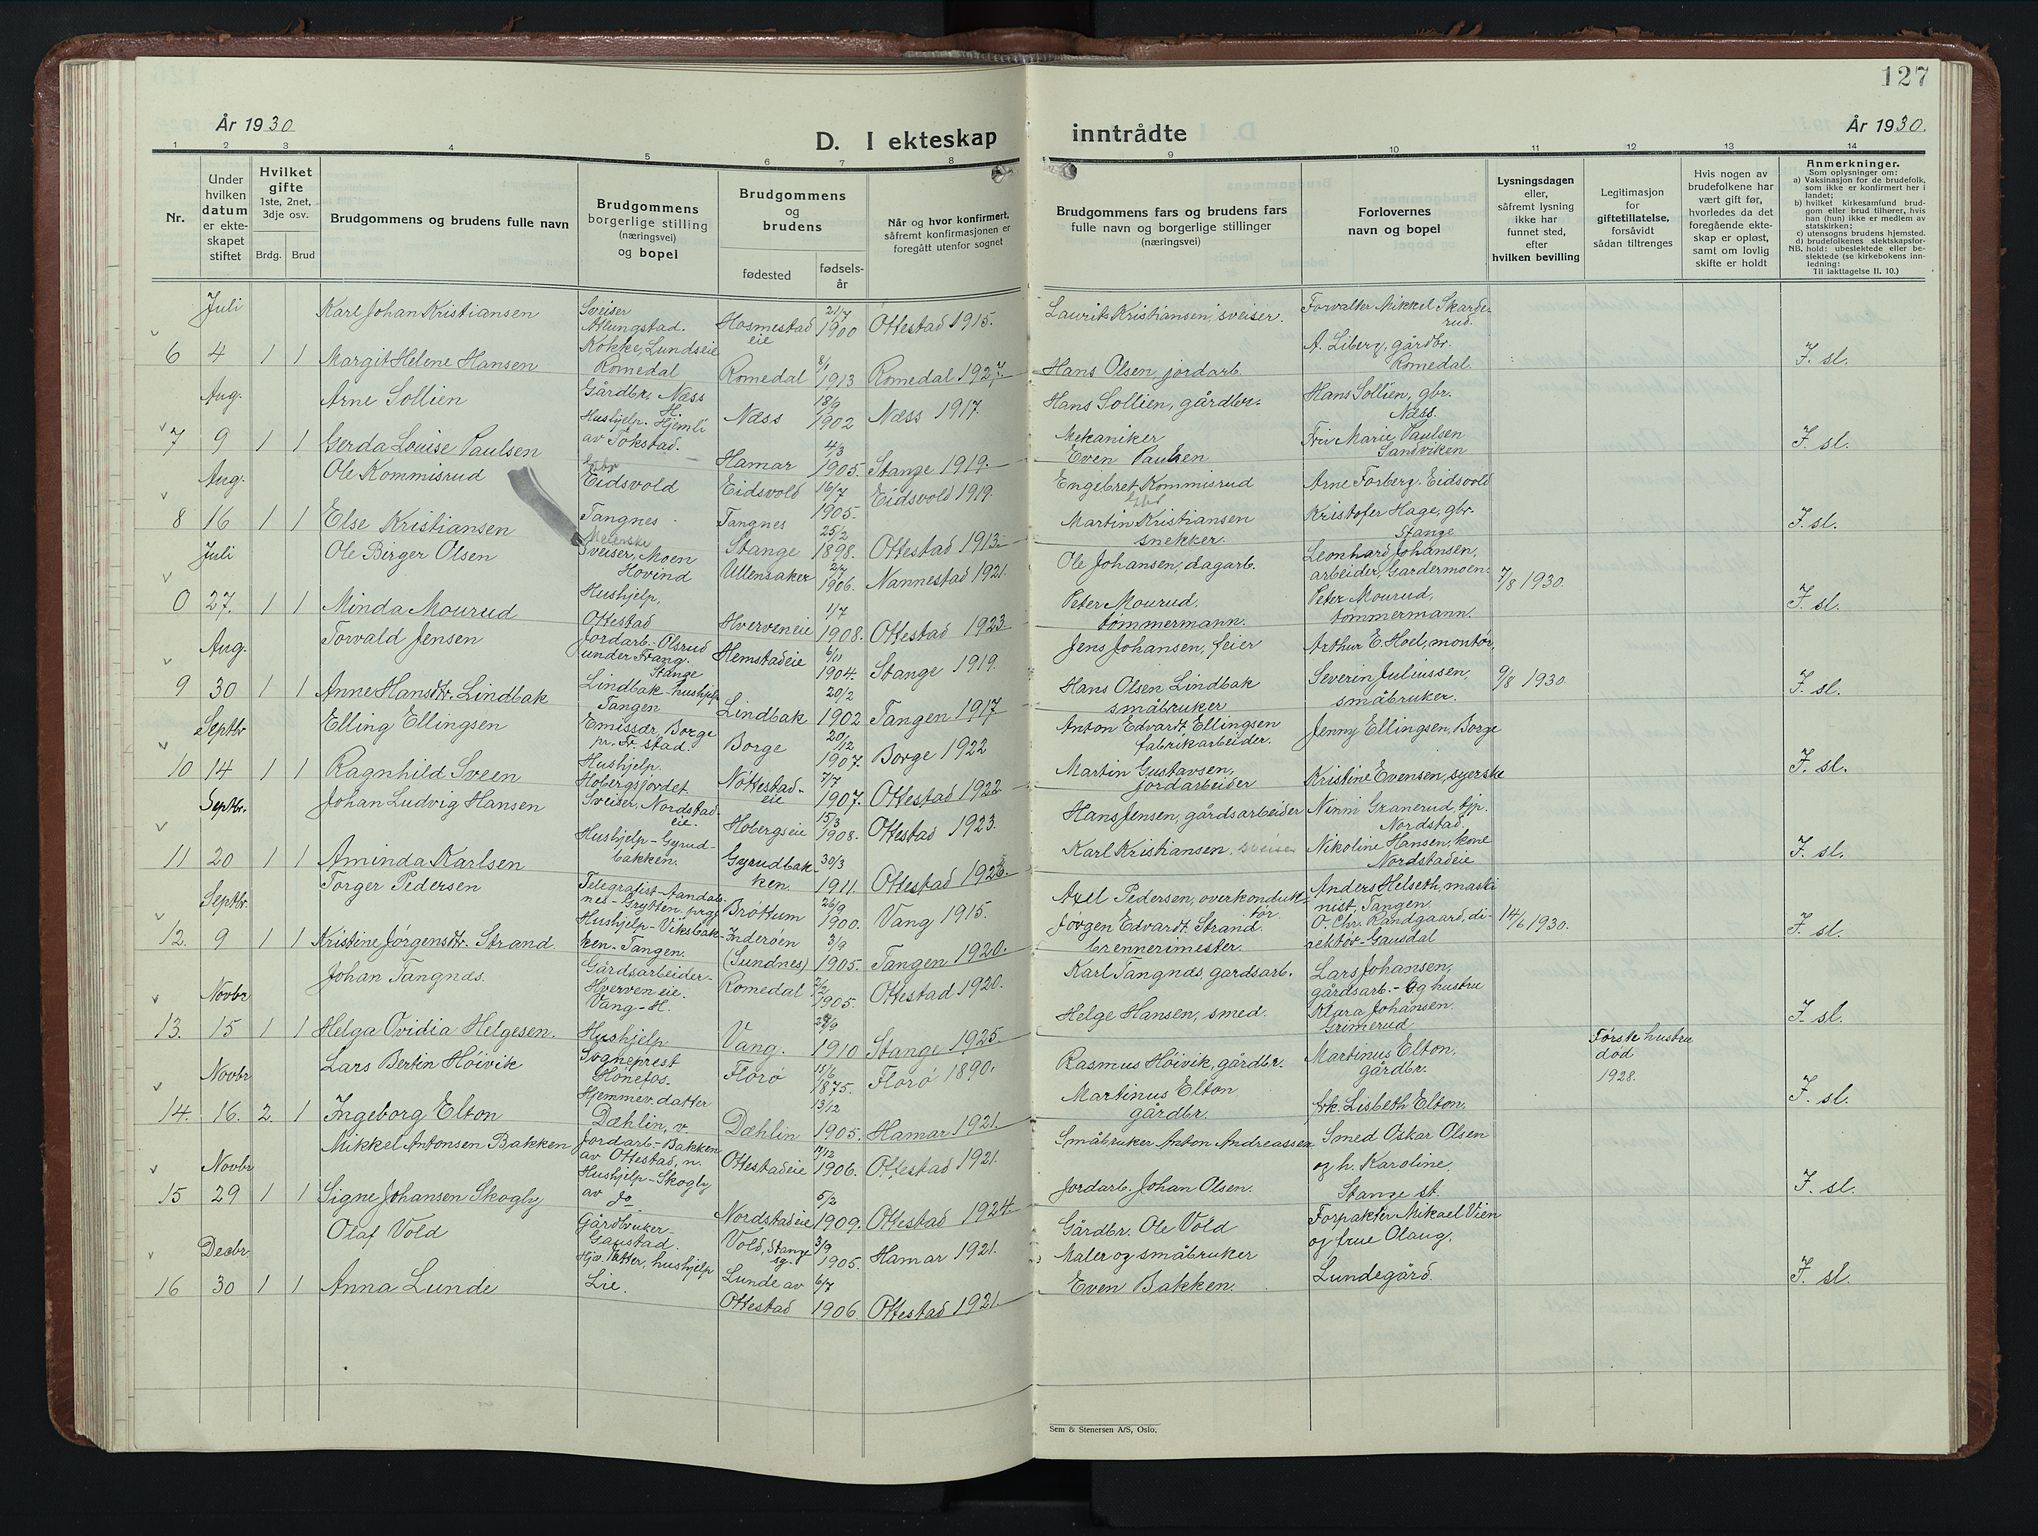 127
År 1930
D. I ekteskap
inntrådte
År 1930.
1 2 3 4 5 6 7 8 9 10 11 12 13 14
Nr.
Under hvilken datum er ekteskapet stiftet
Hvilket gifte 1ste, 2net, 3dje osv.
Brdg. Brud
Brudgommens og brudens fulle navn
Brudgommens borgerlige stilling (næringsvei) og bopel
Brudgommens og brudens
fødested
fødselsår
Når og hvor konfirmert, såfremt konfirmasjonen er foregått utenfor sognet
Brudgommens fars og brudens fars fulle navn og borgerlige stillinger (næringsvei)
Forlovernes navn og bopel
Lysningsdagen eller, såfremt lysning ikke har funnet sted, efter hvilken bevilling
Legitimasjon for giftetillatelse, forsåvidt sådan tiltrenges
Hvis nogen av brudefolkene har vært gift før, hvorledes da det foregående ekteskap er opløst, samt om lovlig skifte er holdt
Anmerkninger.
Som oplysninger om:
a) Vaksinasjon for de brudefolk, som ikke er konfirmert her i landet;
b) hvilket kirkesamfund brudgom eller brud tilhører, hvis han (hun) ikke er medlem av statskirken;
c) utensogns brudens hjemsted.
d) brudefolkenes slektskapsforhold: ubeslektede eller beslektede (se kirkebokens innledning:
NB.
Til iakttagelse II. 10.)
Juli Karl Johan Kristiansen Sveiser Atlungstad. Hosmestad eie 21/7 1900 Ottestad 1915. Laurik Kristiansen, sveiser. Forvalter Mikkel Skarderud.
6 4 1 1 Margit Helene Hansen Kokke, Lundseie Romedal Romedal 8/1 1913 Romedal 1927. Hans Olsen, jordarb. A. Liberg, gårdbr. Romedal. F. sl.
Aug. Arne Sollien Gårdbr, Næss H. Næss 18/9 1902 Næss 1917. Hans Sollien, gårdbr. Hans Sollien, gbr. Næss.
7 9 1 1 Gerda Louise Paulsen Hushjelp. Hjemli av Tokstad. Hamar 4/3 1905. Stange 1919. Mekaniker Even Paulsen Fru Marie Paulsen Sandviken F. sl.
Aug. Ole Kommisrud Eidsvold Eidsvold 16/7 1905. Eidsvold 1919. Engebret Kommisrud Arne Forberg. Eidsvold
8 16 1 1 Else Kristiansen Tangnes. Tangnes Stange 25/2 1898. Ottestad 1913. Martin Kristiansen snekker. Kristofer Hage, gbr. Stange F. sl.
Juli Ole Birger Olsen Sveiser, Moen Hovind Ullensaker 2/7 1906. Nannestad 1921. Ole Johansen, dagarb. Leonhard Johansen, arbeider, Gardermoen. 7/8 1930.
0 27. 1 1 Minda Mourud Hushjelp, Ottestad Hverveneie 1/7 1908. Ottestad 1923 Peter Mourud, tømmermann. Peter Mourud, tømmermann. F. sl.
Aug. Torvald Jensen Jordarb. Olsrud under Frang. Stange Hemstadeie 6/11 1904. Stange 1919. Jens Johansen, feier Arthur E. Hoel, montør,
9 30 1 1 Anne Hansdtr. Lindbak Lindbak - hushjelp Tangen Lindbak 20/2 1902 Tangen 1917 Hans Olsen Lindbak småbruker Severin Juliussen, småbruker. 9/8 1930. F. sl.
Septbr Elling Ellingsen Emissær, Borge pr. Fr. stad. Borge 20/12 1907. Borge 1922 Anton Edvardt. Ellingsen fabrikarbeider. Jenny Ellingsen, Borge
10 14 1 1 Ragnhild Sveen Hushjelp. Hobergsjordet. Nøttestadeie 7/7 1907. Ottestad 1922 Martin Gustavsen, jordarbeider Kristine Evensen, syerske F. sl.
Septbr. Johan Ludvig Hansen Sveiser, Nordstadeie. Hobergseie 15/3 1908. Ottestad 1923. Hans Jensen, gårdsarbeider Ninni Granerud tjp. Nordstad.
11 20 1 1 Aminda Karlsen Hushjelp - Gyrudbakken. Gyrudbakken. 30/3 1911. Ottestad Karl Kristiansen. sveiser Nikoline Hansen, kone Nordstadeie F. sl.
Septbr Torger Pedersen Telegrafist - Aandalsnes - Grytten. prgj. Brøttum 26/9 1900. Vang 1915. Axel Pedersen, overkonduktør Anders Helseth, maskinist, Tangen.
12. 9 1 1 Kristine Jørgensdtr. Strand. Hushjelp - Viksbakken. Tangen. Inderøen (Sundnes) 3/9 1905. Tangen 1920. Jørgen Edvardt. Strand brennerimester. O. Chr. Randgaard, direktør - Gausdal 14/6 1930. F. sl.
Novbr Johan Tangnæs. Gårdsarbeider - Hverven eie. Vang - H. Romedal 2/2 1905. Ottestad 1920. Karl Tangnæs, gardsarb. Lars Johansen, gårdsarb. - og hustru
13. 15 1 1 Helga Ovidia Helgesen. Hushjelp Vang. 29/9 1910 Stange 1925. Helge Hansen, smed. Klara Johansen. Grimerud F. sl.
Novbr Lars Bertin Höivik Sogneprest Hönefos. Florø 18/6 1875. Florø 1890. Rasmus Höivik, gårdbr. Martinus Elton, gårdbr. Første hustru død 1928.
14. 16. 2. 1 Ingeborg Elton Hjemmev. datter Dæhlin, v Dæhlin 13/12 1905. Hamar 1921. Martinus Elton gårdbr. frk. Lisbeth Elton. F. sl.
Novbr Mikkel Antonsen Bakken Jordarb. - Bakken av Ottestad, n. Ottestadeie 11/12 1906. Ottestad 1921. Småbruker Anton Andreassen Smed Oskar Olsen og h. Karoline.
15 29 1 1 Signe Johansen Skogly Hushjelp - Skogly av do Nordstadeie 5/2 1909. Ottestad 1924. Jordarb. Johan Olsen. Stange st. F. sl.
Decbr Olaf Vold Gårdbruker Gaustad. Vold, Stange sg. 3/9 1905. Hamar 1921. Gårdbr. Ole Vold Forpakter Mikael Vien og frue Olaug.
16 30 1 1 Anna Lunde Hjv. datter, hushjelp Lie. Lunde av Ottestad 6/7 1906. Ottestad 1921. Maler og småbruker Even Bakken. Lundegård. F. sl.
Sem & Stenersen A/S, Oslo.